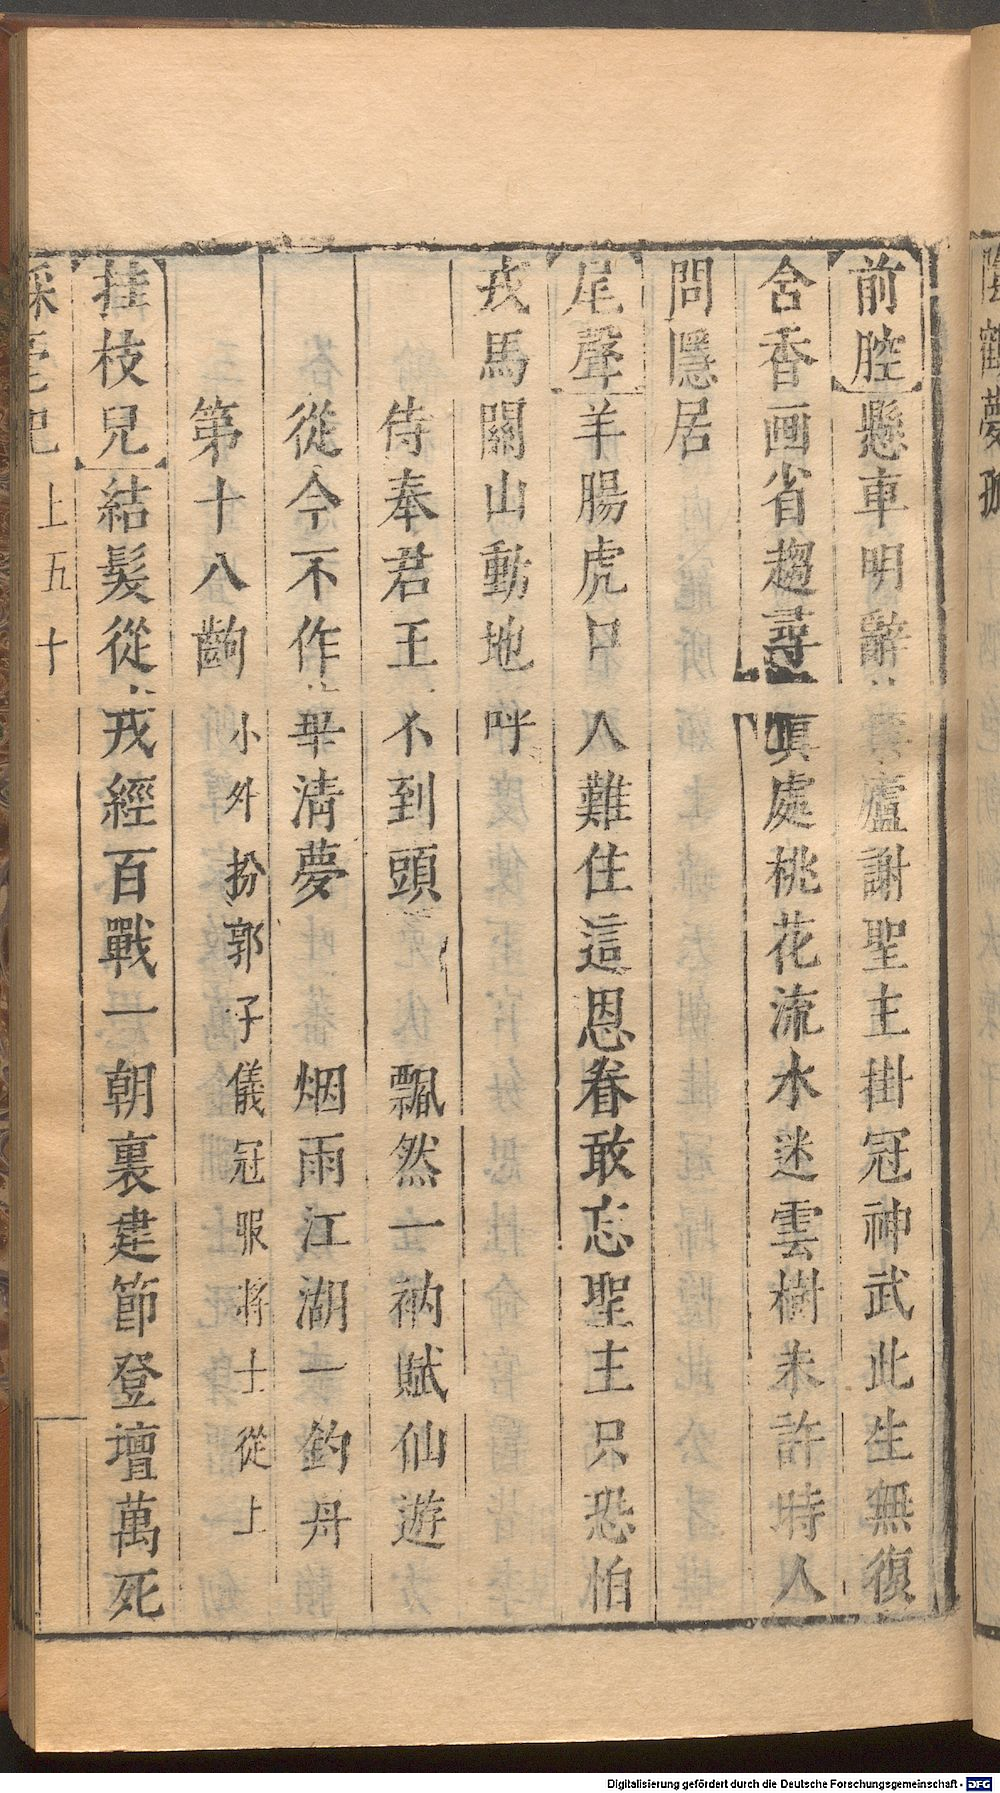 前腔懸車明辭舊廬謝聖主掛冠神武此生無復
含香画省趨尋真處桃花流水迷雲樹未許時人
問隱居
尾聲羊腸虎口人難住這恩眷敢忘聖主只恐怕
戎馬關山動地呼
侍奉君王不到頭 飄然一衲賦仙遊
從今不作華清夢 烟雨江湖一釣舟
第十八齣 小外扮郭子儀冠服將士從上
挂枝兒結髮從戎經百戰一朝裏建節登壇萬死
綵毫記 上 五十
Digitalisierung gefördert durch die Deutsche Forschungsgemeinschaft - DFG